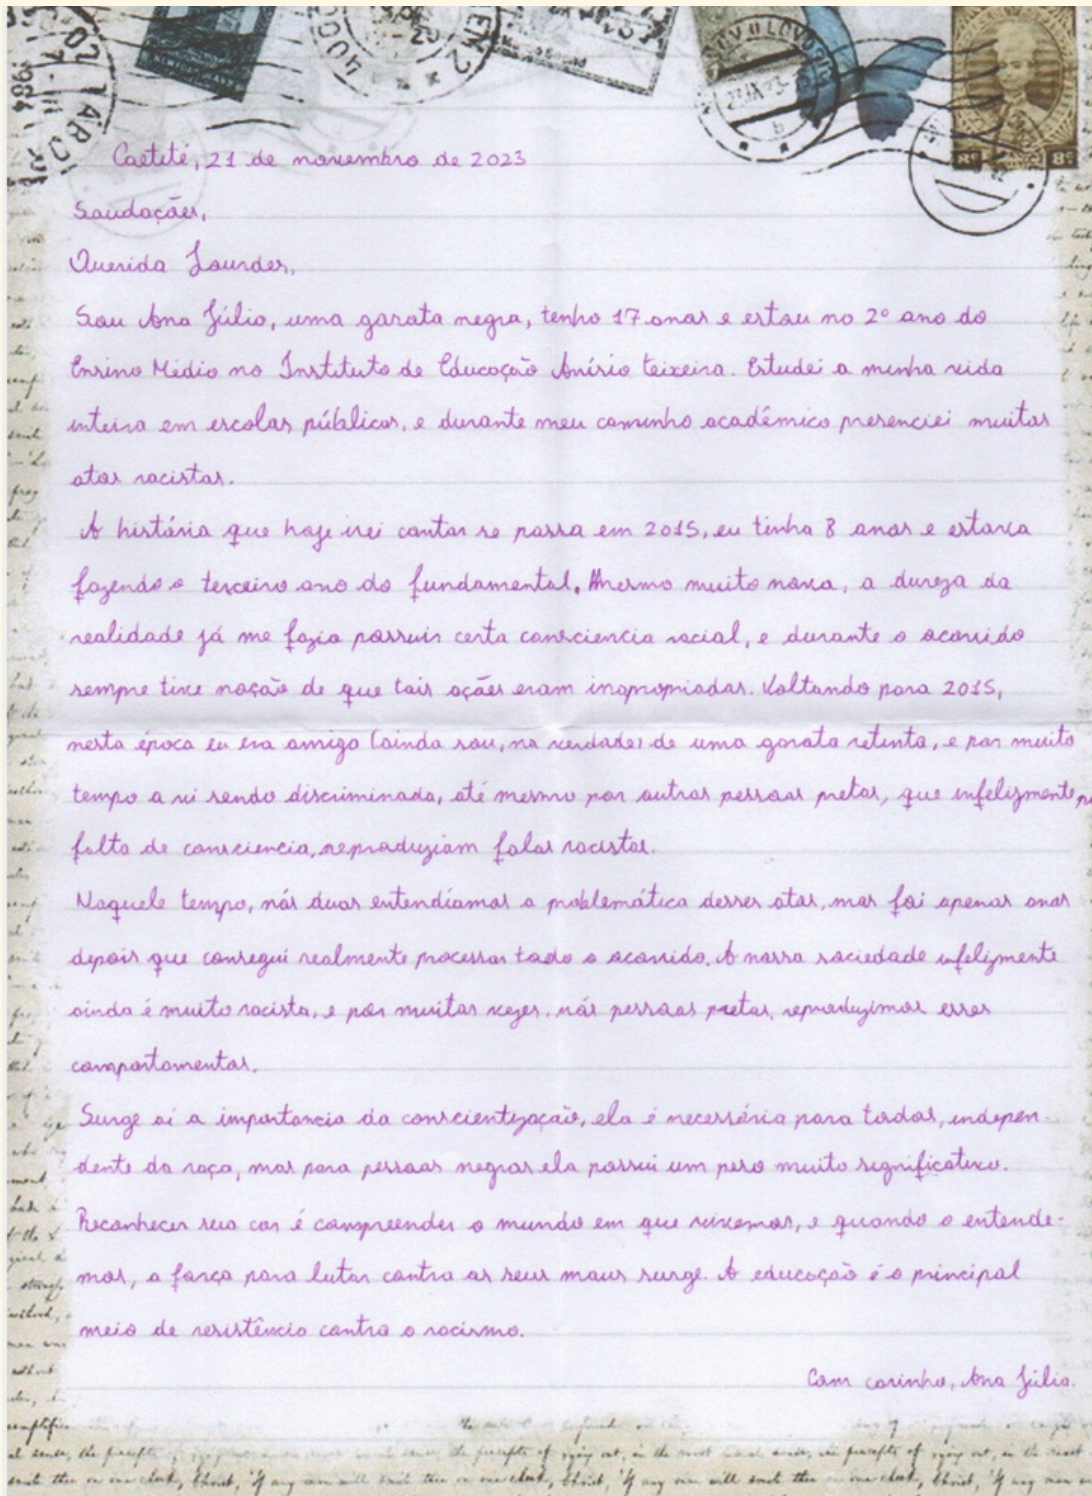 Caetité, 21 de novembro de 2023
Saudações,
Querida Lourdes,
Sou Ana Júlia, uma garota negra, tenho 17 anos e estou no 2º ano do
Ensino Médio no Instituto de Educação Anísio Teixeira. Estudei a minha vida
inteira em escolas públicas, e durante meu caminho acadêmico presenciei muitos
atos racistas.
A história que hoje irei contar se passa em 2015, eu tinha 8 anos e estava
fazendo o terceiro ano do fundamental. Mesmo muito nova, a dureza da
realidade já me fazia possuir certa consciencia racial, e durante o ocorrido
sempre tive noção de que tais ações eram inapropiadas. Voltando para 2015,
nesta época eu era amiga (ainda sou, na verdade) de uma garota retinta, e por muito
tempo a vi sendo discriminada, até mesmo por outras pessoas pretas, que infelizmente
falta de consciencia, reproduziam falas racistas.
Naquele tempo, nós duas entendíamos a problemática desses atos, mas foi apenas anos
depois que consegui realmente processar todo o ocorrido. A nossa sociedade infelizmente
ainda é muito racista, e por muitas vezes, nós pessoas pretas, reproduzimos esses
comportamentos.
Surge aí a importancia da conscientização, ela é necessária para todos, indepen-
dente da raça, mas para pessoas negras ela possui um peso muito significativo.
Reconhecer sua cor é compreender o mundo em que vivemos, e quando o entende-
mos, a força para lutar contra os seus maus surge. A educação é o principal
meio de resistência contra o racismo.
Com carinho, Ana Júlia.